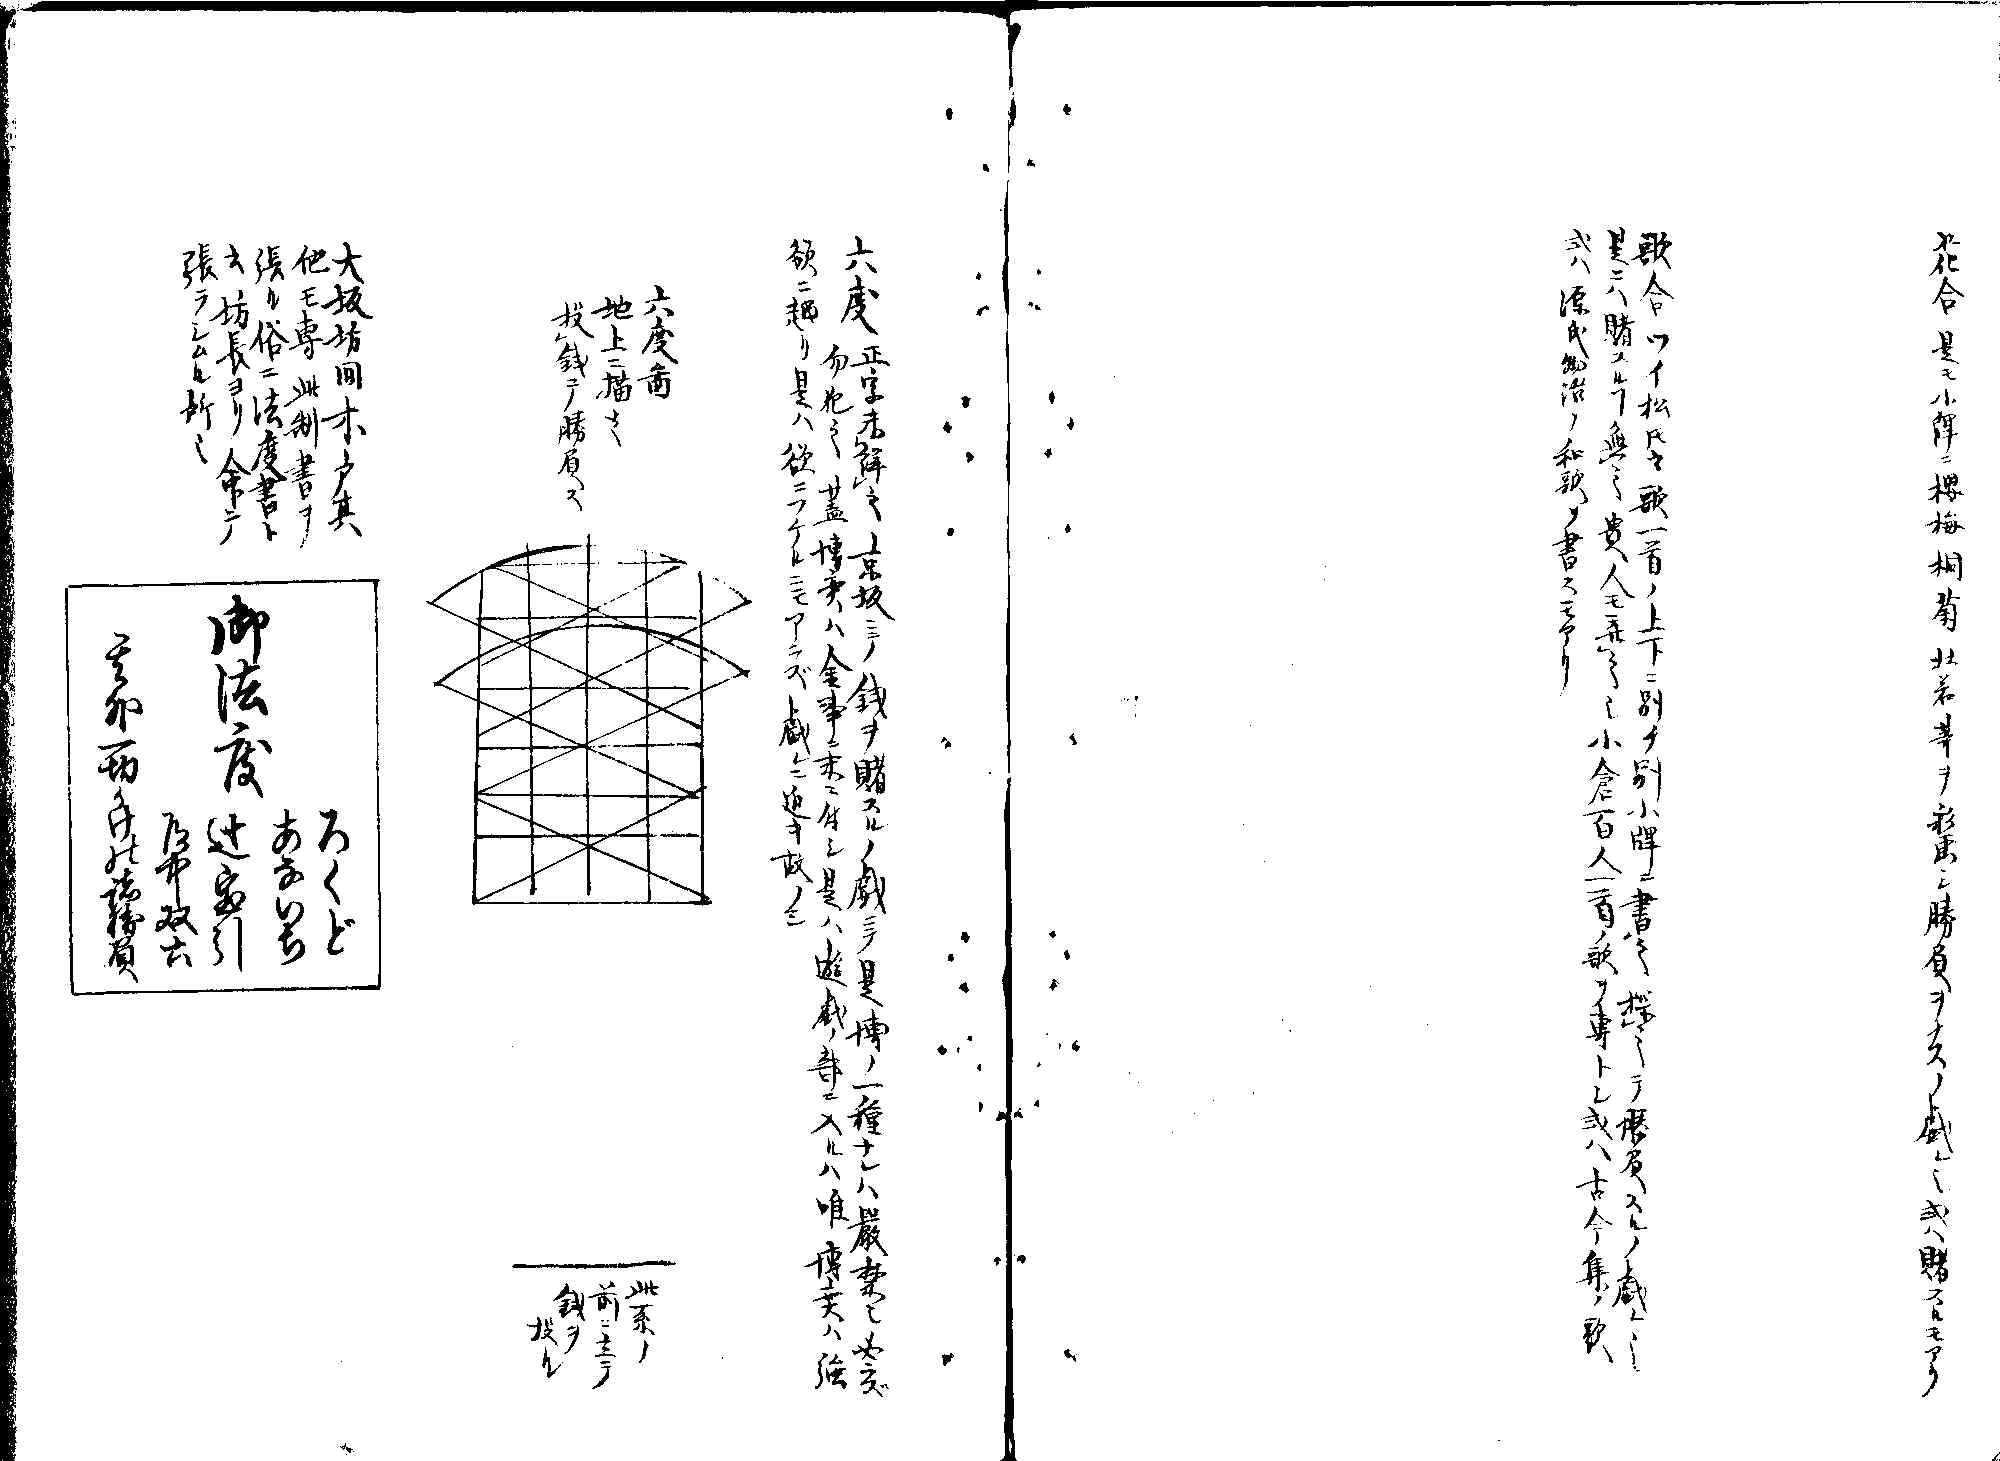 花合 是モ小牌ニ櫻梅桐菊牡若等ヲ彩画シ勝負ヲナスノ戯也或ハ賭スルモアリ
歌合 ツイ松氏云歌一首ノ上下ニ別チ別小牌ニ書キ探之テ勝負スルノ戯也
是ニハ賭スルヿ無之貴人モ弄之也小倉百人一首ノ歌ヲ専トシ或ハ古今集ノ歌
或ハ源氏ノ和歌ヲ書スモアリ
六度 正字未詳也京坂ニテノ銭ヲ賭スルノ戯ニテ是博ノ一種ナレハ嚴禁也必ラズ
勿犯之蓋博奕ハ金事ニ是ハ遊戯ノ部ニ入ルハ唯博奕ハ強
欲ニ起リ是ハ欲ニフケルニモアラズ戯ニ近キ故ノミ
六度圖
地上ニ描キ
投銭テ勝負ス
此系ノ
前ニ立テ
銭ヲ
投ル
大坂坊間木戸其
他モ専此制書ヲ
張ル俗ニ法度書ト
云坊長ヨリ命テ
張ラシムル所也
御法度
ろくど
あないち
辻宝引
双六
其外一切諸勝負